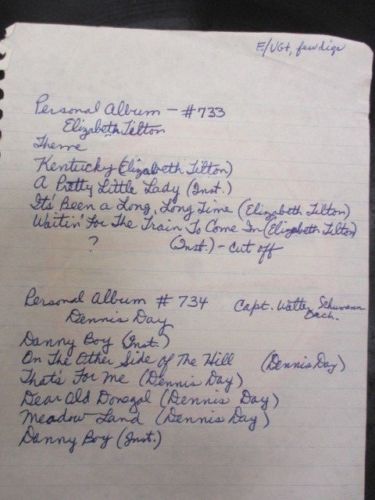 E/VG+, few digs
Personal Album - #733
Elizabeth Tilton
Theme
Kentucky (Elizabeth Tilton)
A Pretty Little Lady (Inst.)
It's Been a Long, Long Time (Elizabeth Tilton)
Waitin' For The Train To Come In (Elizabeth Tilton)
? (Inst.) - cut off
Personal Album #734 Capt. Walter Schumann
Dennis Day Orch.
Danny Boy (Inst.)
On The Other Side of The Hill (Dennis Day)
That's For Me (Dennis Day)
Dear Old Donegal (Dennis Day)
Meadow Land (Dennis Day)
Danny Boy (Inst.)